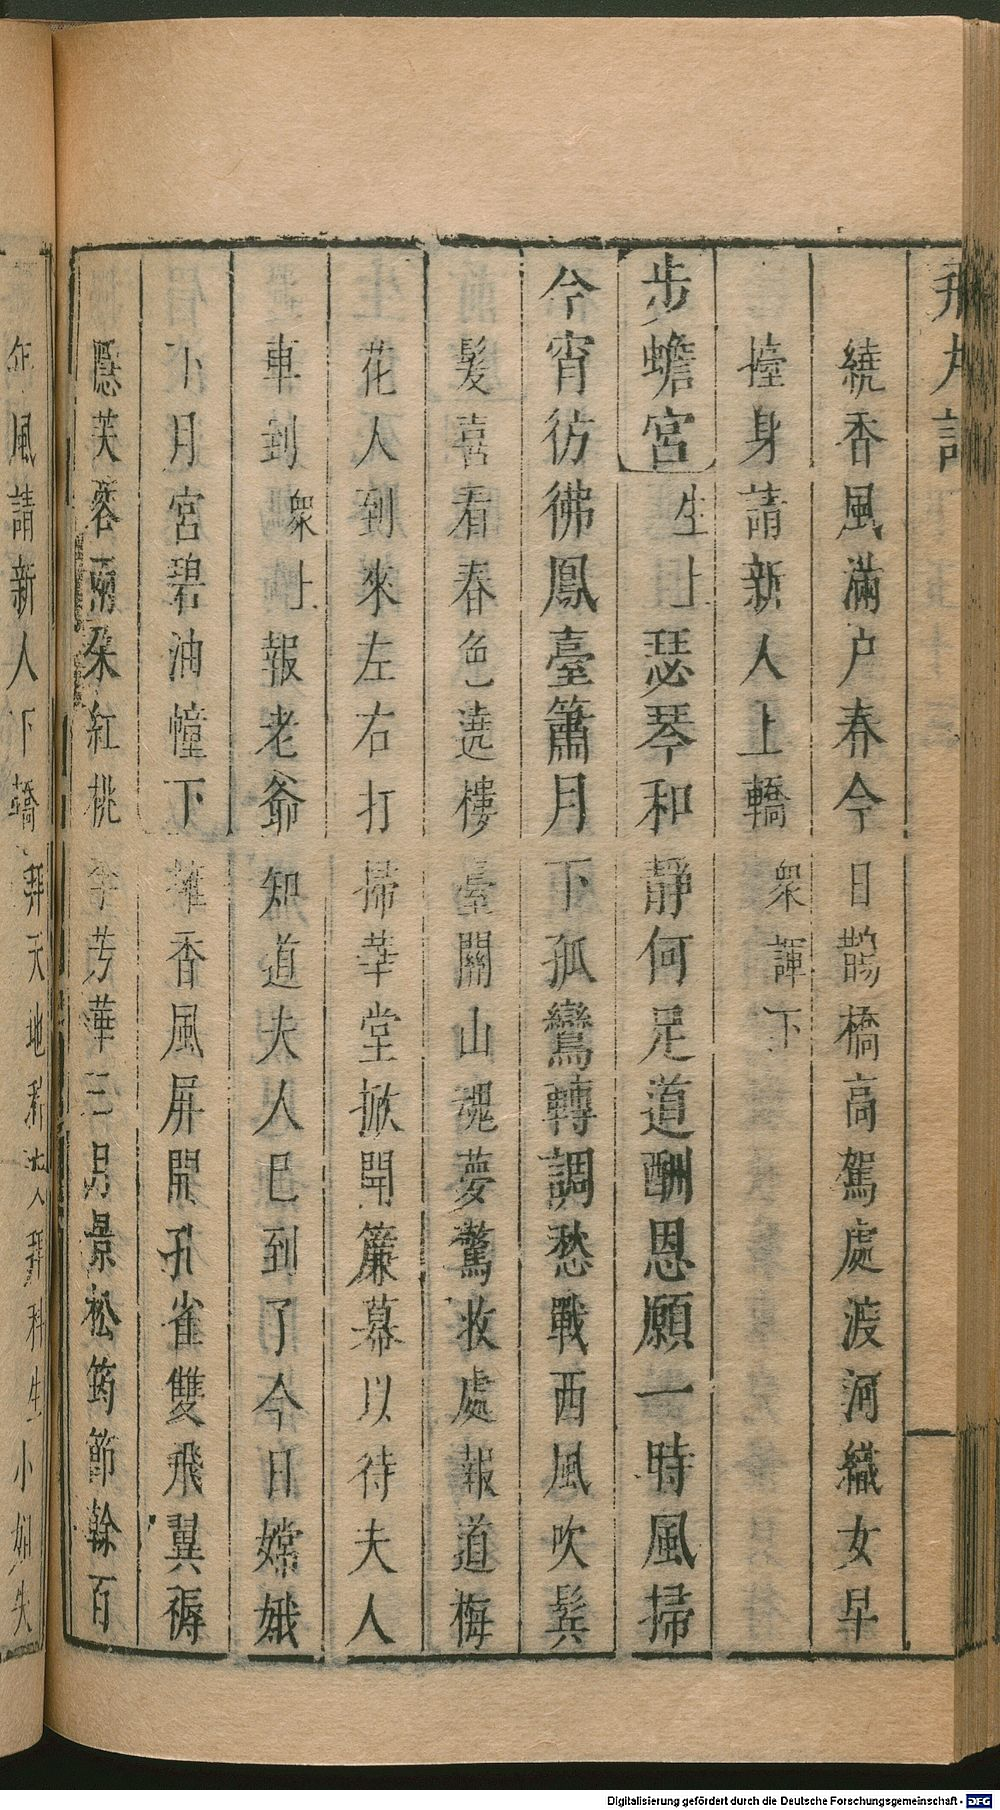 飛丸記
繞香風滿户春今日鵲橋高駕處渡河織女早
擡身請新人上轎衆諢下
步蟾宮生上瑟琴和靜何足道酬恩願一時風掃
今宵彷彿鳳臺簫月下孤鸞轉調愁戰西風吹鬂
髮喜看春色遶樓臺關山魂夢驚收處報道梅
花人到來左右打掃華堂掀開簾幕以待夫人
車到衆上報老爺知道夫人已到了今日嫦娥
下月宮碧油幢下擁香風屏開孔雀雙飛翼褥
隱芙蓉兩朶紅桃李芳華三月景松筠節榦百
年風請新人下轎拜天地科夫人拜科生小姐失
Digitalisierung gefördert durch die Deutsche Forschungsgemeinschaft - DFG